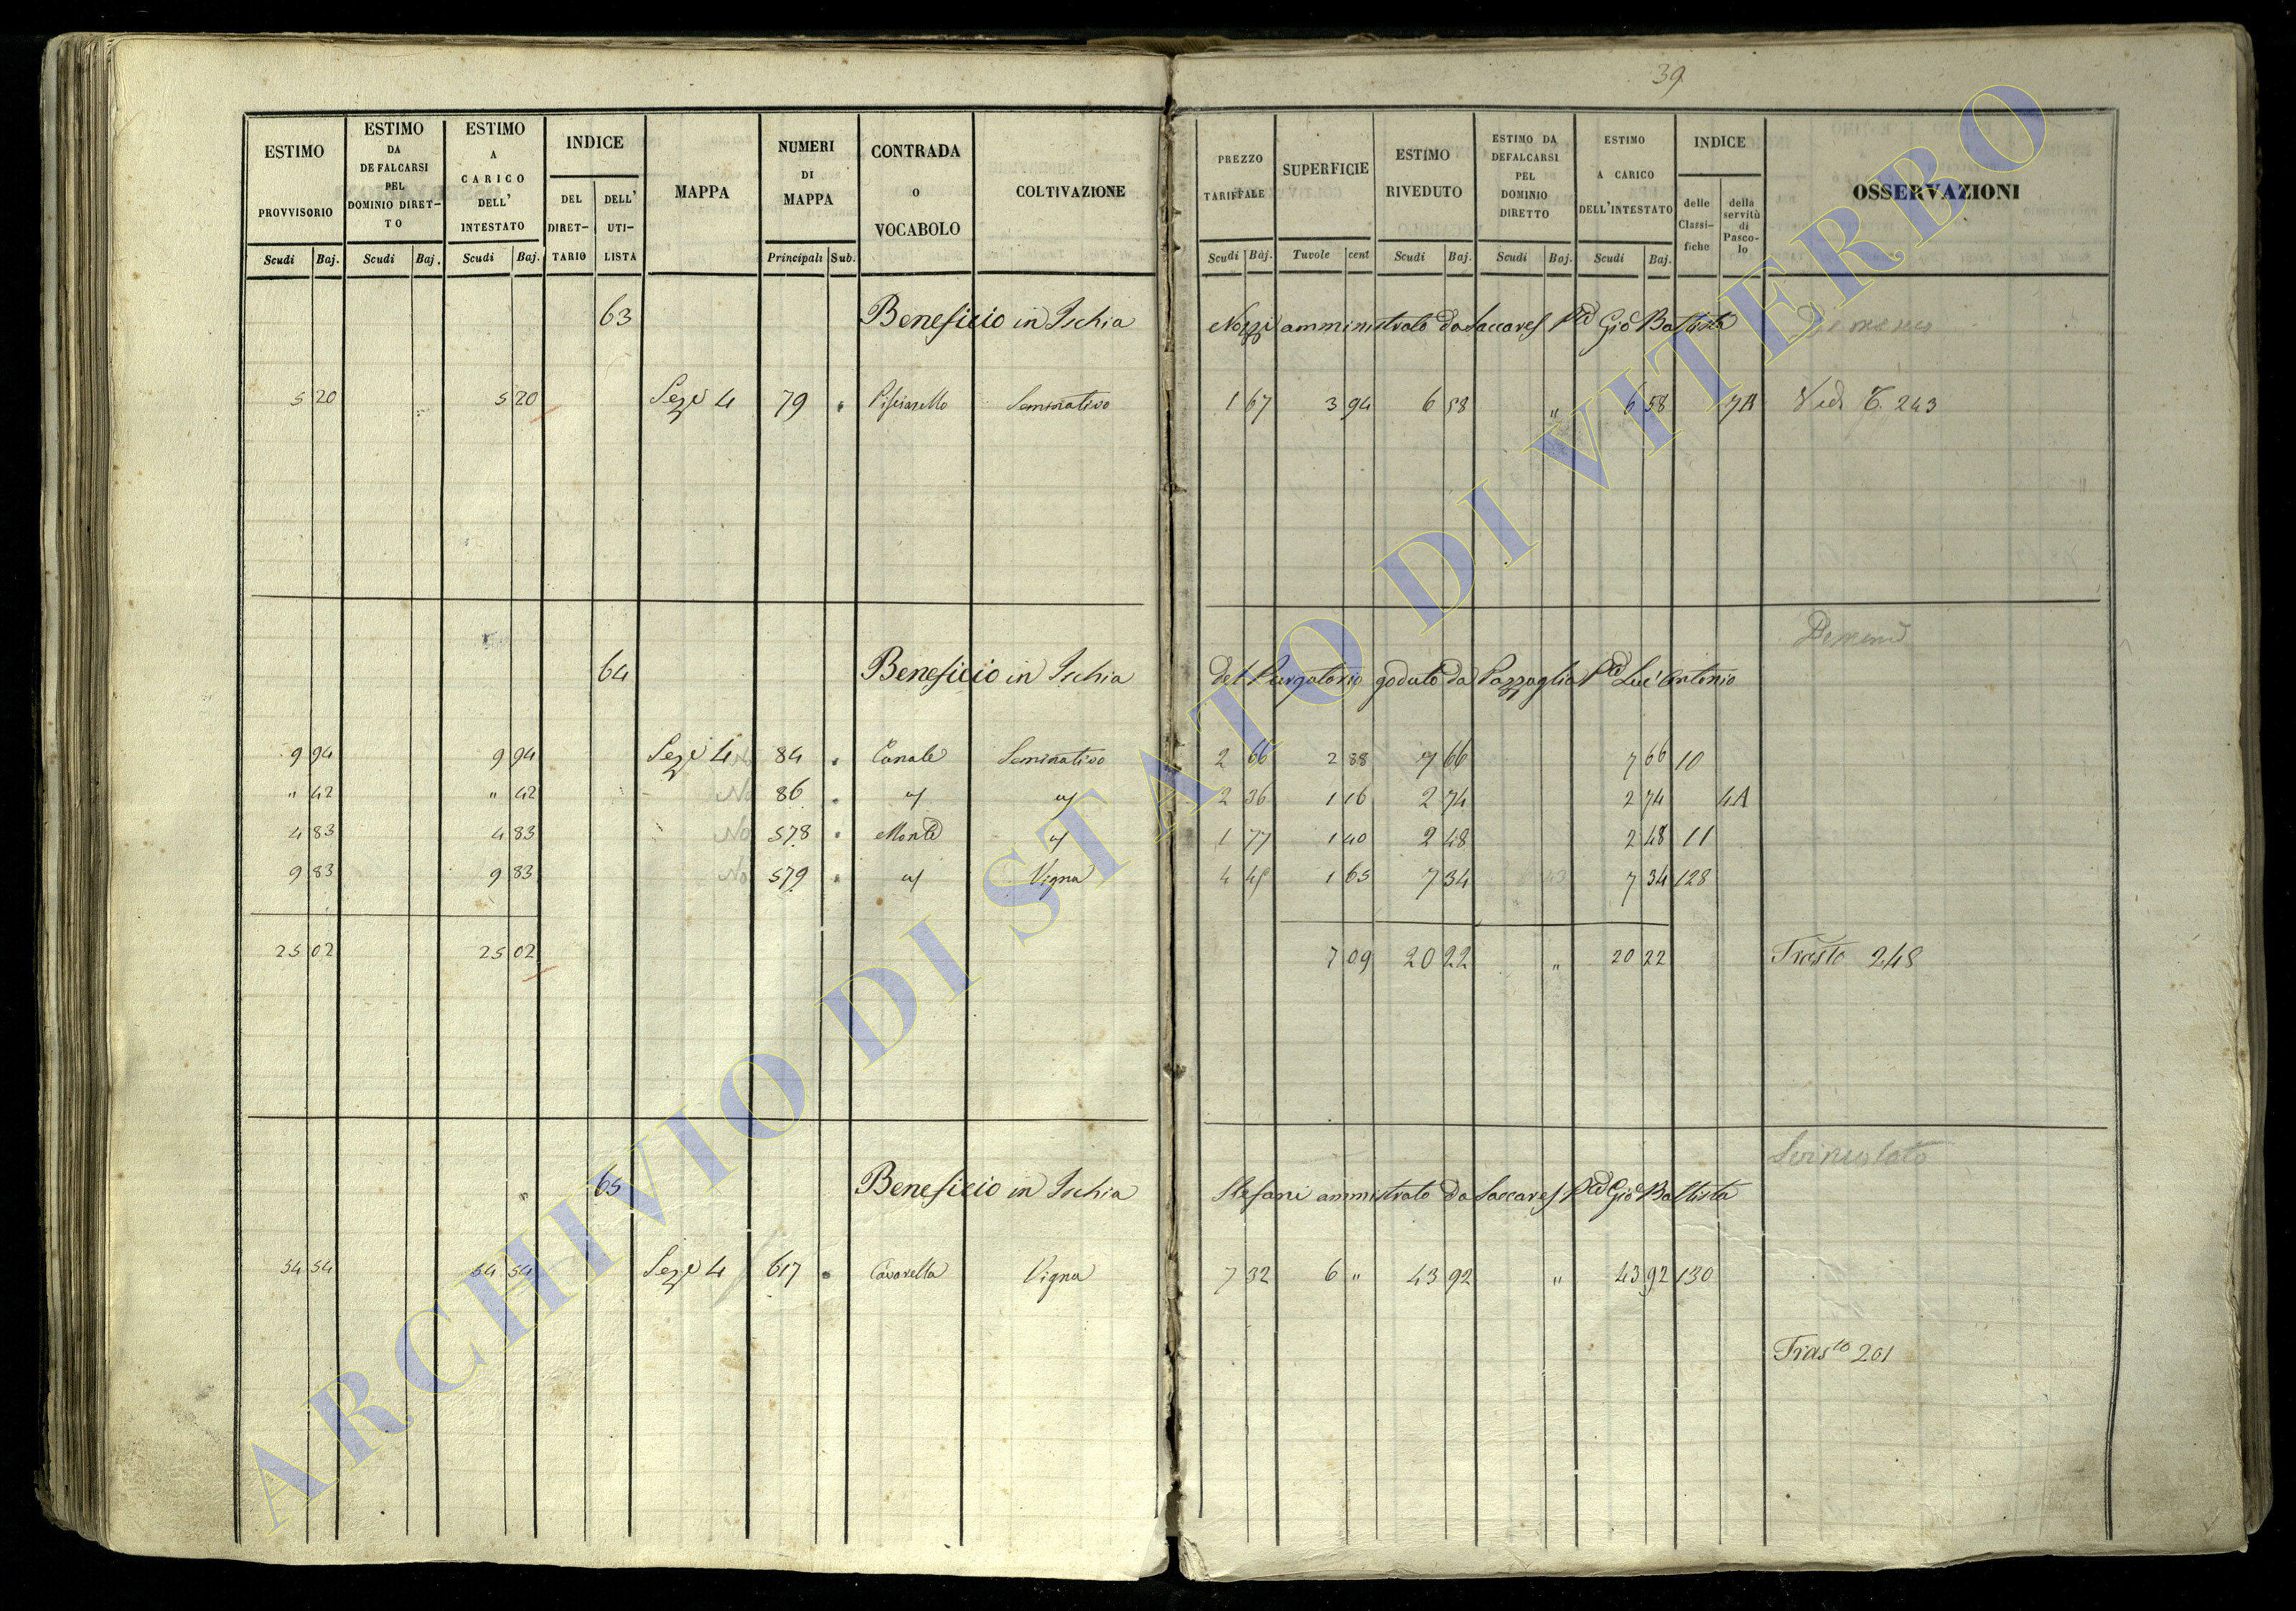 39
ESTIMO PROVVISORIO
ESTIMO DA DEFALCARSI PEL DOMINIO DIRET-TO
ESTIMO A CARICO DELL' INTESTATO
INDICE
DEL DIRET-TARIO
DELL' UTI-LISTA
MAPPA
NUMERI DI MAPPA
CONTRADA o VOCABOLO
COLTIVAZIONE
PREZZO TARIFFALE
SUPERFICIE
ESTIMO RIVEDUTO
ESTIMO DA DEFALCARSI PEL DOMINIO DIRETTO
ESTIMO A CARICO DELL'INTESTATO
INDICE
delle Classi-fiche
della servitù di Pasco-lo
OSSERVAZIONI
Scudi Baj. Scudi Baj. Scudi Baj. Principali Sub. Scudi Baj. Tavole cent Scudi Baj. Scudi Baj. Scudi Baj.
63 Beneficio in Ischia Nozzi amministrato da Saccares Pre Gio Battista
5 20 5 20 Seze 4 79 " Pisciarello Seminativo 1 67 3 94 6 58 " 6 58 7A Vedi T. 243
64 Beneficio in Ischia del Purgatorio goduto da Pazzaglia Luc'Antonio
9 94 9 94 Seze 4 84 " Canale Seminativo 2 66 2 88 7 66 7 66 10
" 42 " 42 No 86 " 2 36 1 16 2 74 2 74 4A
4 83 4 83 No 578 " Monte 1 77 1 40 2 48 2 48 11
9 83 9 83 No 579 " Vigna 4 45 1 65 7 34 7 34 128
25 02 25 02 7 09 20 22 " 20 22 Trasto 248
65 Beneficio in Ischia Stefani ammistrato da Saccares Gio Battista
54 54 54 54 Seze 4 617 " Cavarella Vigna 7 32 6 " 43 92 " 43 92 130
Trasto 201
ARCHIVIO DI STATO DI VITERBO